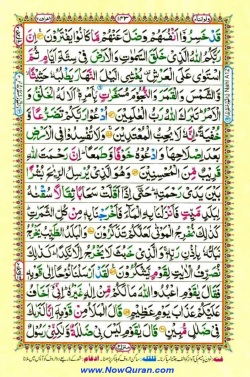 ۱۴۳
قَدْ خَسِرُوْۤا اَنْفُسَهُمْ وَضَلَّ عَنْهُمْ مَّا كَانُوْا يَفْتَرُوْنَ اِنَّ
رَبَّكُمُ اللّٰهُ الَّذِيْ خَلَقَ السَّمٰوٰتِ وَالْاَرْضَ فِيْ سِتَّةِ اَيَّامٍ ثُمَّ
اسْتَوٰى عَلَى الْعَرْشِ يُغْشِي الَّيْلَ النَّهَارَ يَطْلُبُهٗ حَثِيْثًا
وَّالشَّمْسَ وَالْقَمَرَ وَالنُّجُوْمَ مُسَخَّرٰتٍۭ بِاَمْرِهٖ اَلَا لَهُ الْخَلْقُ وَ
الْاَمْرُ تَبٰرَكَ اللّٰهُ رَبُّ الْعٰلَمِيْنَ اُدْعُوْا رَبَّكُمْ تَضَرُّعًا وَّ
خُفْيَةً اِنَّهٗ لَا يُحِبُّ الْمُعْتَدِيْنَ وَلَا تُفْسِدُوْا فِي الْاَرْضِ
بَعْدَ اِصْلَاحِهَا وَادْعُوْهُ خَوْفًا وَّطَمَعًا اِنَّ رَحْمَتَ اللّٰهِ
قَرِيْبٌ مِّنَ الْمُحْسِنِيْنَ وَهُوَ الَّذِيْ يُرْسِلُ الرِّيٰحَ بُشْرًاۢ
بَيْنَ يَدَيْ رَحْمَتِهٖ حَتّٰۤى اِذَاۤ اَقَلَّتْ سَحَابًا ثِقَالًا سُقْنٰهُ
لِبَلَدٍ مَّيِّتٍ فَاَنْزَلْنَا بِهِ الْمَآءَ فَاَخْرَجْنَا بِهٖ مِنْ كُلِّ الثَّمَرٰتِ
كَذٰلِكَ نُخْرِجُ الْمَوْتٰى لَعَلَّكُمْ تَذَكَّرُوْنَ وَالْبَلَدُ الطَّيِّبُ يَخْرُجُ
نَبَاتُهٗ بِاِذْنِ رَبِّهٖ وَالَّذِيْ خَبُثَ لَا يَخْرُجُ اِلَّا نَكِدًا كَذٰلِكَ
نُصَرِّفُ الْاٰيٰتِ لِقَوْمٍ يَّشْكُرُوْنَ لَقَدْ اَرْسَلْنَا نُوْحًا اِلٰى قَوْمِهٖ
فَقَالَ يٰقَوْمِ اعْبُدُوا اللّٰهَ مَا لَكُمْ مِّنْ اِلٰهٍ غَيْرُهٗ اِنِّيْۤ اَخَافُ
عَلَيْكُمْ عَذَابَ يَوْمٍ عَظِيْمٍ قَالَ الْمَلَاُ مِنْ قَوْمِهٖۤ اِنَّا لَنَرٰىكَ
فِيْ ضَلٰلٍ مُّبِيْنٍ قَالَ يٰقَوْمِ لَيْسَ بِيْ ضَلٰلَةٌ وَّلٰكِنِّيْ رَسُوْلٌ
www.NowQuran.com